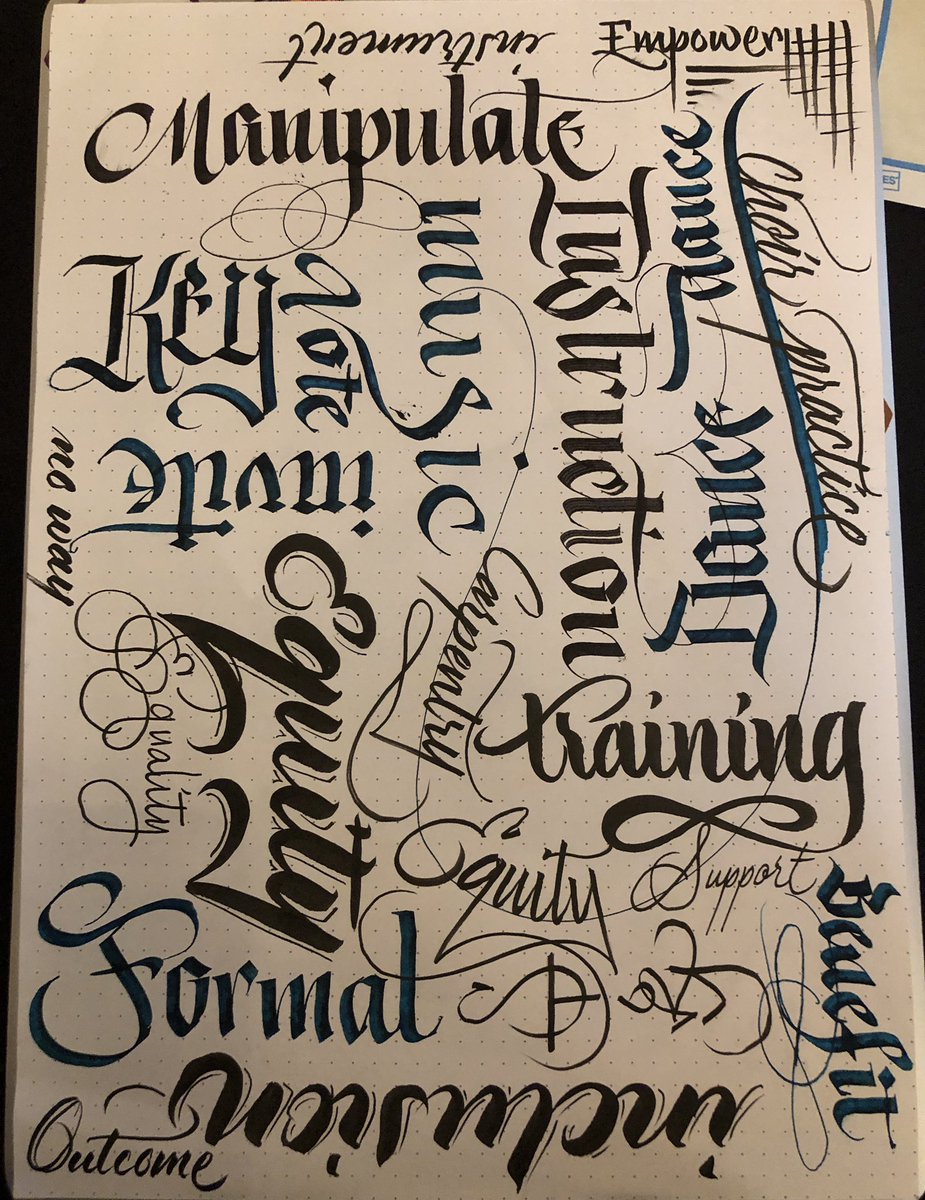 instrument
Empower
Manipulate
music
Instruction
Choir practice
Key
Note
Dance
invite
no way
Equity
Carpentry
Equality
training
Equity
Support
Benefit
Formal
inclusion
Outcome